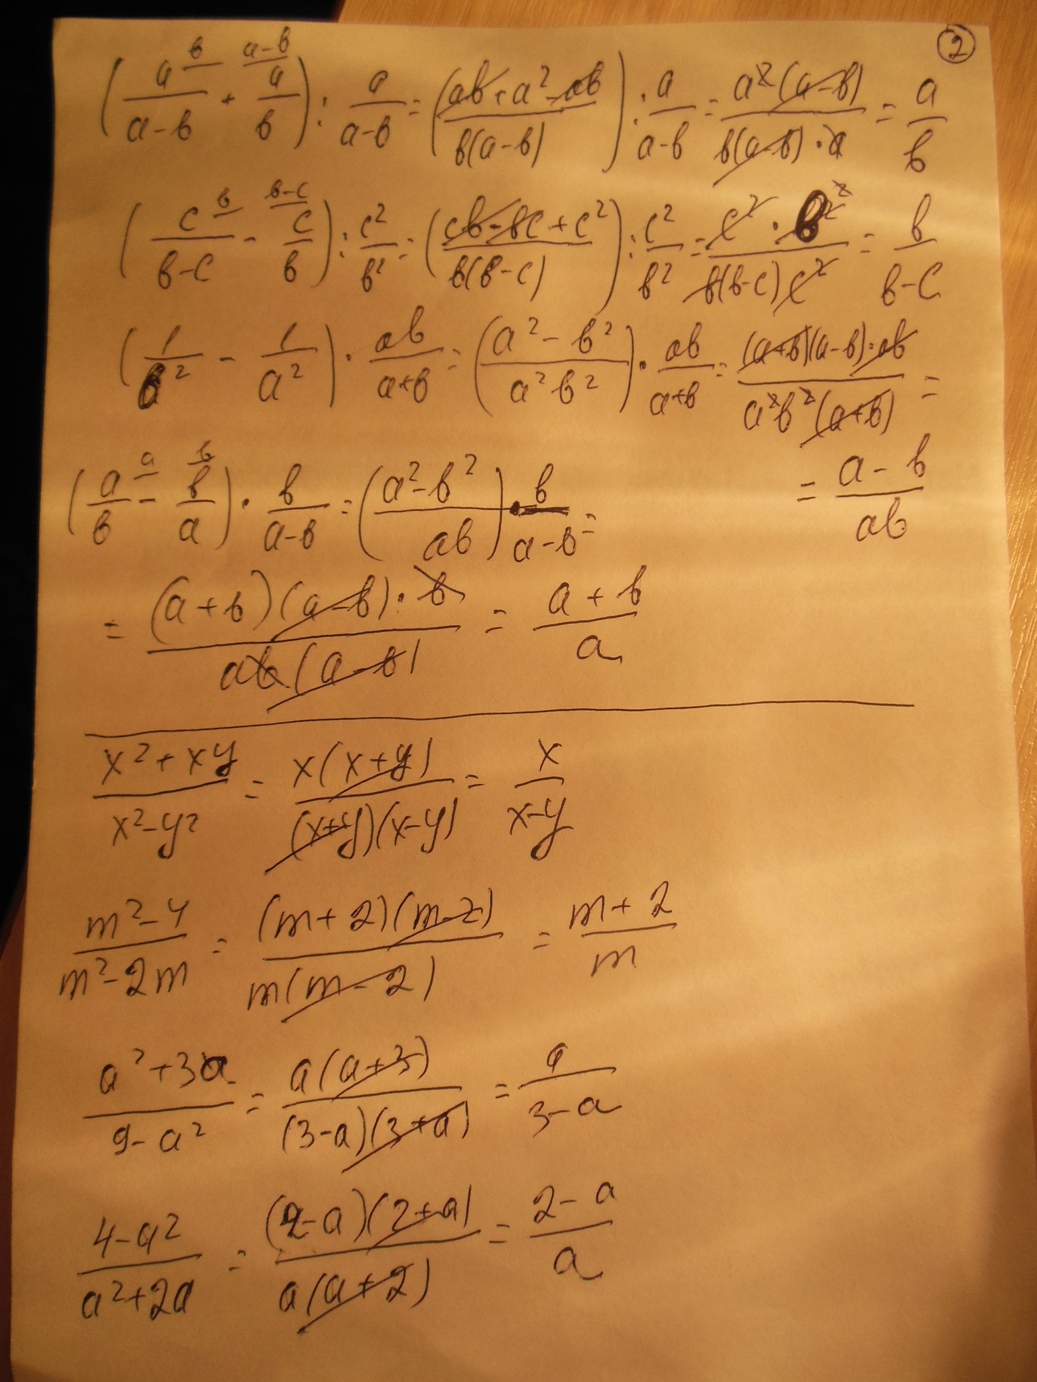 ②
(a/(a-b) + a/b) : a/(a-b) = ((ab+a²-ab)/(b(a-b))) : a/(a-b) = a²(a-b)/(b(a-b)·a) = a/b
(c/(b-c) - c/b) : c²/b² = ((cb-bc+c²)/(b(b-c))) : c²/b² = c²·b²/(b(b-c)c²) = b/(b-c)
(1/b² - 1/a²) · ab/(a+b) = ((a²-b²)/(a²b²)) · ab/(a+b) = (a+b)(a-b)·ab/(a²b²(a+b)) =
= (a-b)/(ab)
(a/b - b/a) · b/(a-b) = ((a²-b²)/(ab)) · b/(a-b) =
= (a+b)(a-b)·b/(ab(a-b)) = (a+b)/a
(x²+xy)/(x²-y²) = x(x+y)/((x+y)(x-y)) = x/(x-y)
(m²-4)/(m²-2m) = (m+2)(m-2)/(m(m-2)) = (m+2)/m
(a²+3a)/(9-a²) = a(a+3)/((3-a)(3+a)) = a/(3-a)
(4-a²)/(a²+2a) = (2-a)(2+a)/(a(a+2)) = (2-a)/a